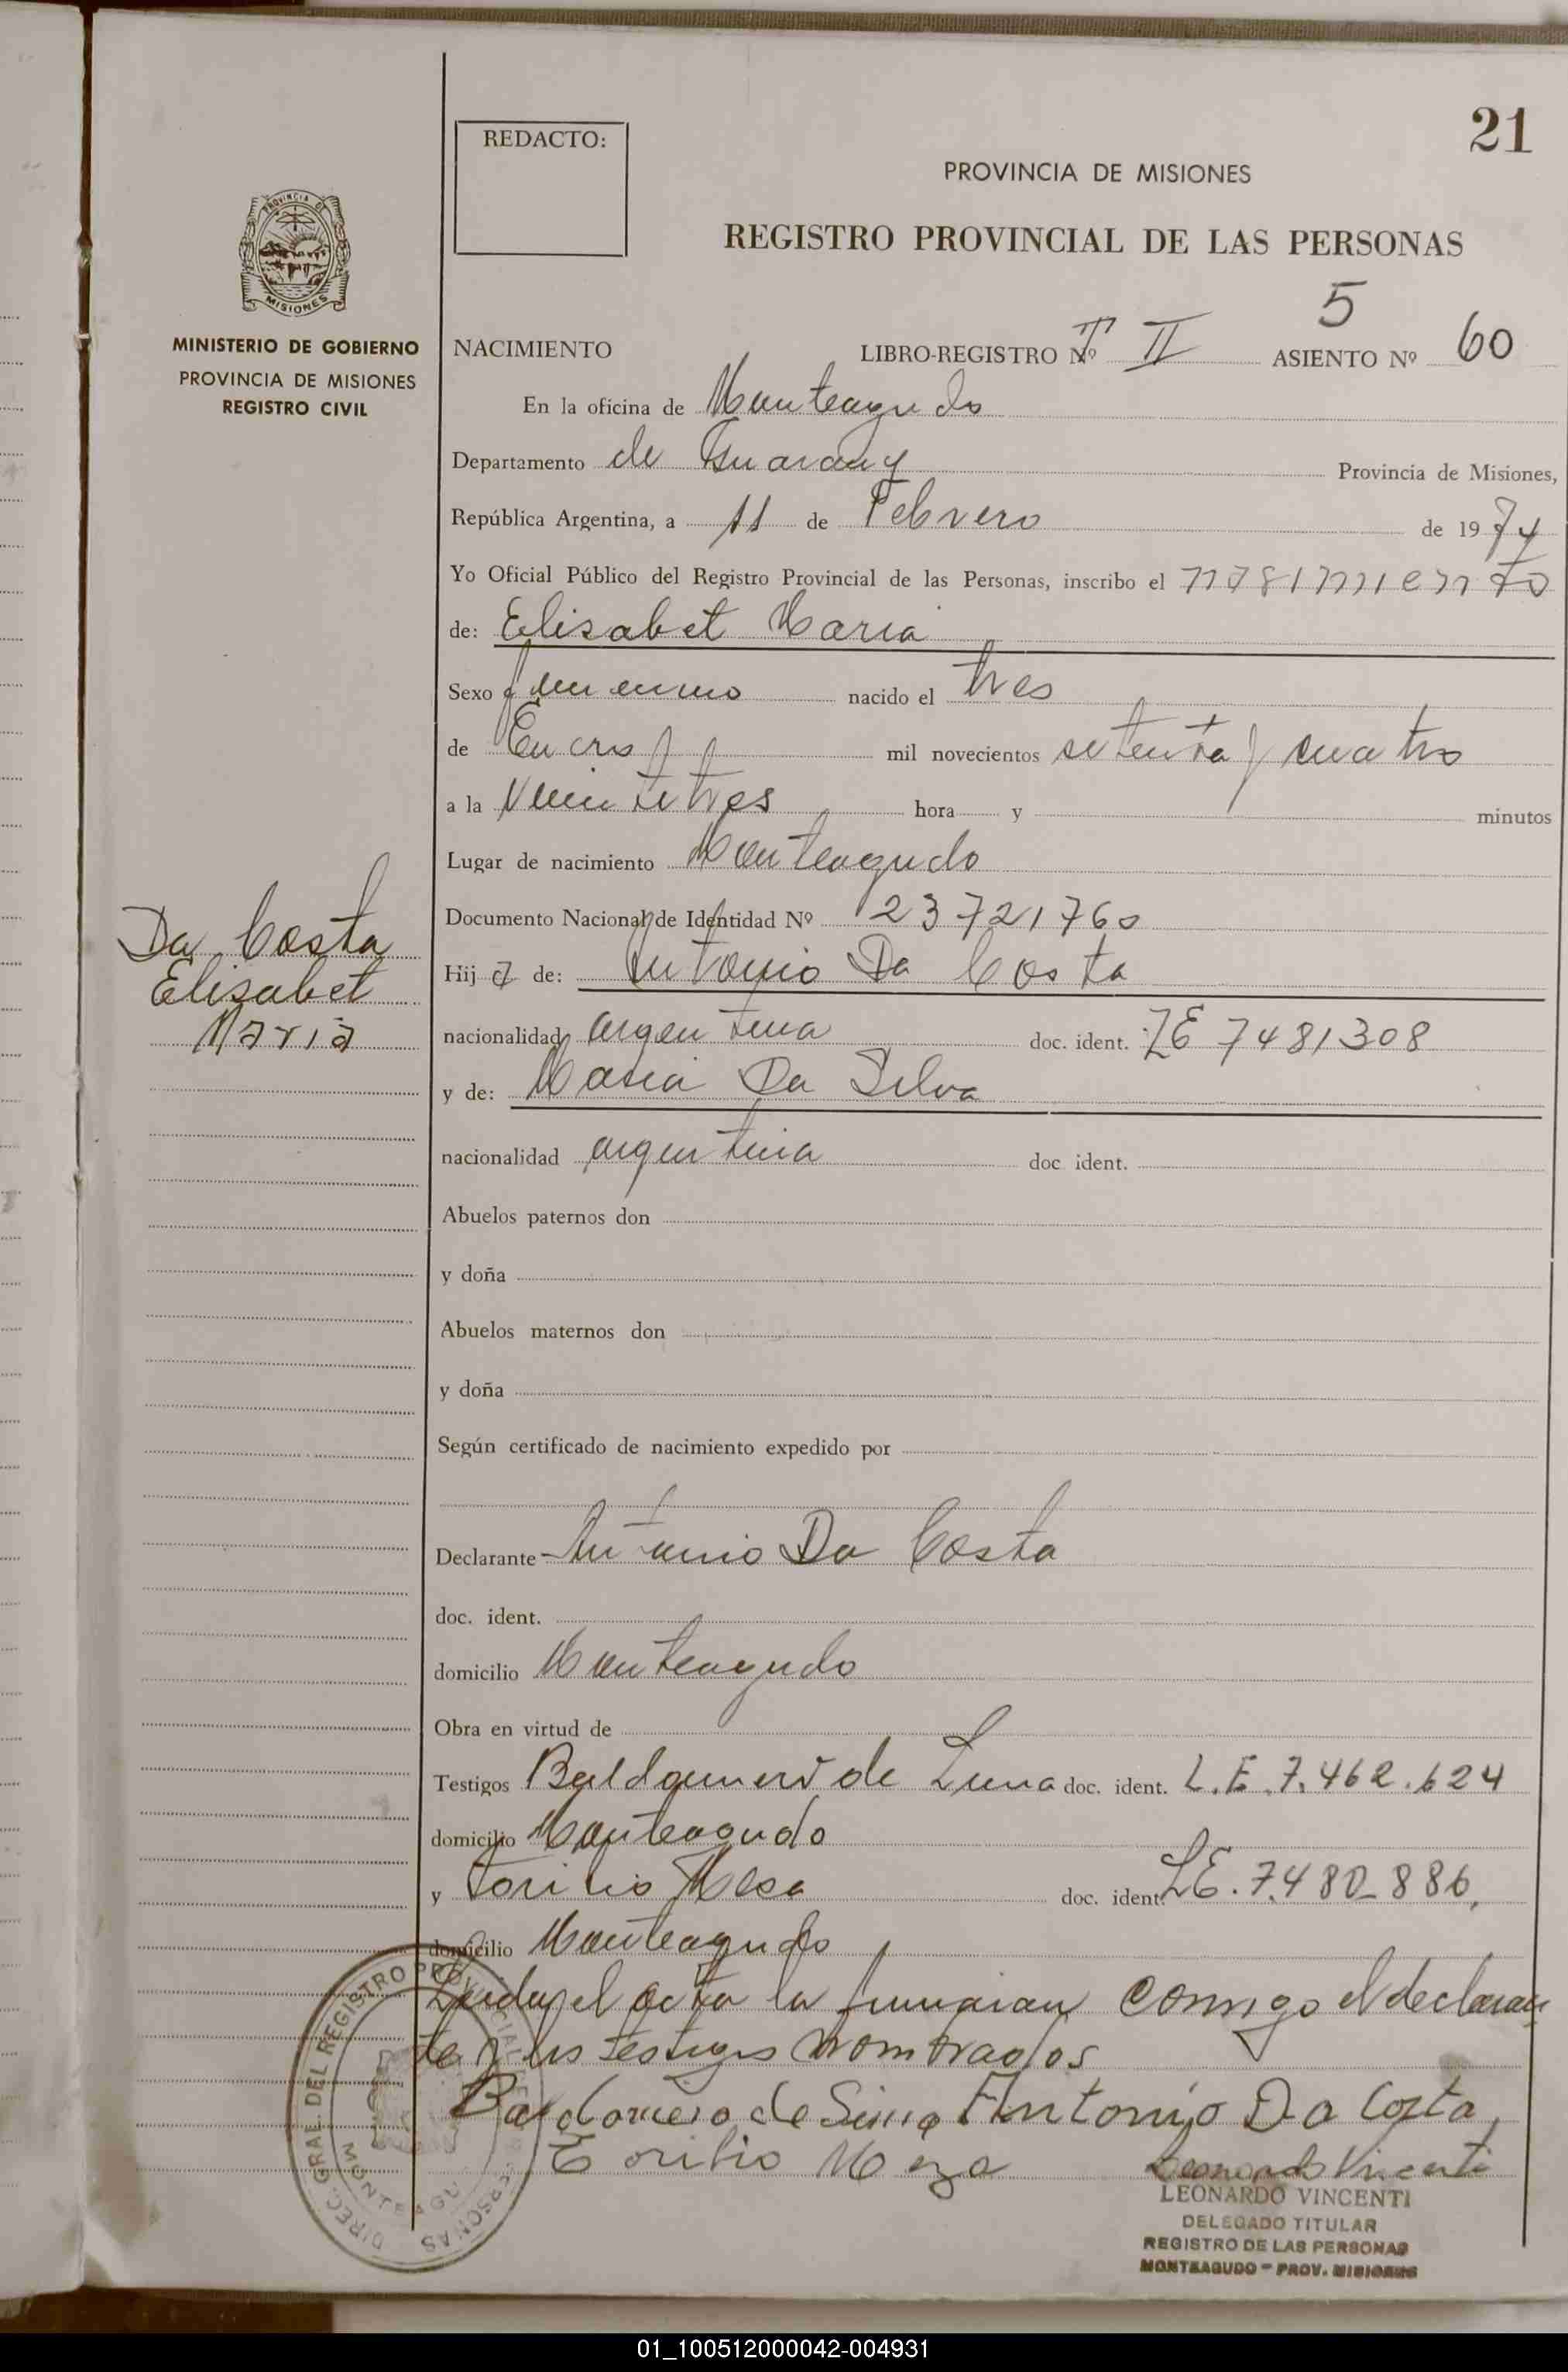 21
REDACTO:
PROVINCIA DE MISIONES
REGISTRO PROVINCIAL DE LAS PERSONAS
PROVINCIA DE
MISIONES
MINISTERIO DE GOBIERNO
PROVINCIA DE MISIONES
REGISTRO CIVIL
5
NACIMIENTO LIBRO-REGISTRO Nº T II ASIENTO Nº 60
En la oficina de Monteagudo
Departamento de Guarany Provincia de Misiones,
República Argentina, a 11 de Febrero de 1974
Yo Oficial Público del Registro Provincial de las Personas, inscribo el nacimiento
de: Elisabet Maria
Sexo femenino nacido el tres
de Enero mil novecientos setenta y cuatro
a la veintitres hora y minutos
Lugar de nacimiento Monteagudo
Documento Nacional de Identidad Nº 23721760
Da Costa
Elisabet
Maria
Hija de: Antonio Da Costa
nacionalidad argentina doc. ident. LE 7481308
y de: Maria Da Silva
nacionalidad argentina doc ident.
Abuelos paternos don
y doña
Abuelos maternos don
y doña
Según certificado de nacimiento expedido por
Declarante Antonio Da Costa
doc. ident.
domicilio Monteagudo
Obra en virtud de
Testigos Baldomero de Lima doc. ident. L.E. 7.462.624
domicilio Monteagudo
y Torilio Mesa doc. ident. LE. 7.480-886,
domicilio Monteagudo
Leida el acta la firmaran conmigo el declaran
te y los testigos nombrados
Baldomero de Lima Antonio Da Costa,
Torilio Meza Leonardo Vincenti
LEONARDO VINCENTI
DELEGADO TITULAR
REGISTRO DE LAS PERSONAS
MONTEAGUDO - PROV. MISIONES
DIREC. GRAL. DEL REGISTRO PROVINCIAL DE PERSONAS
MONTEAGU
01_100512000042-004931